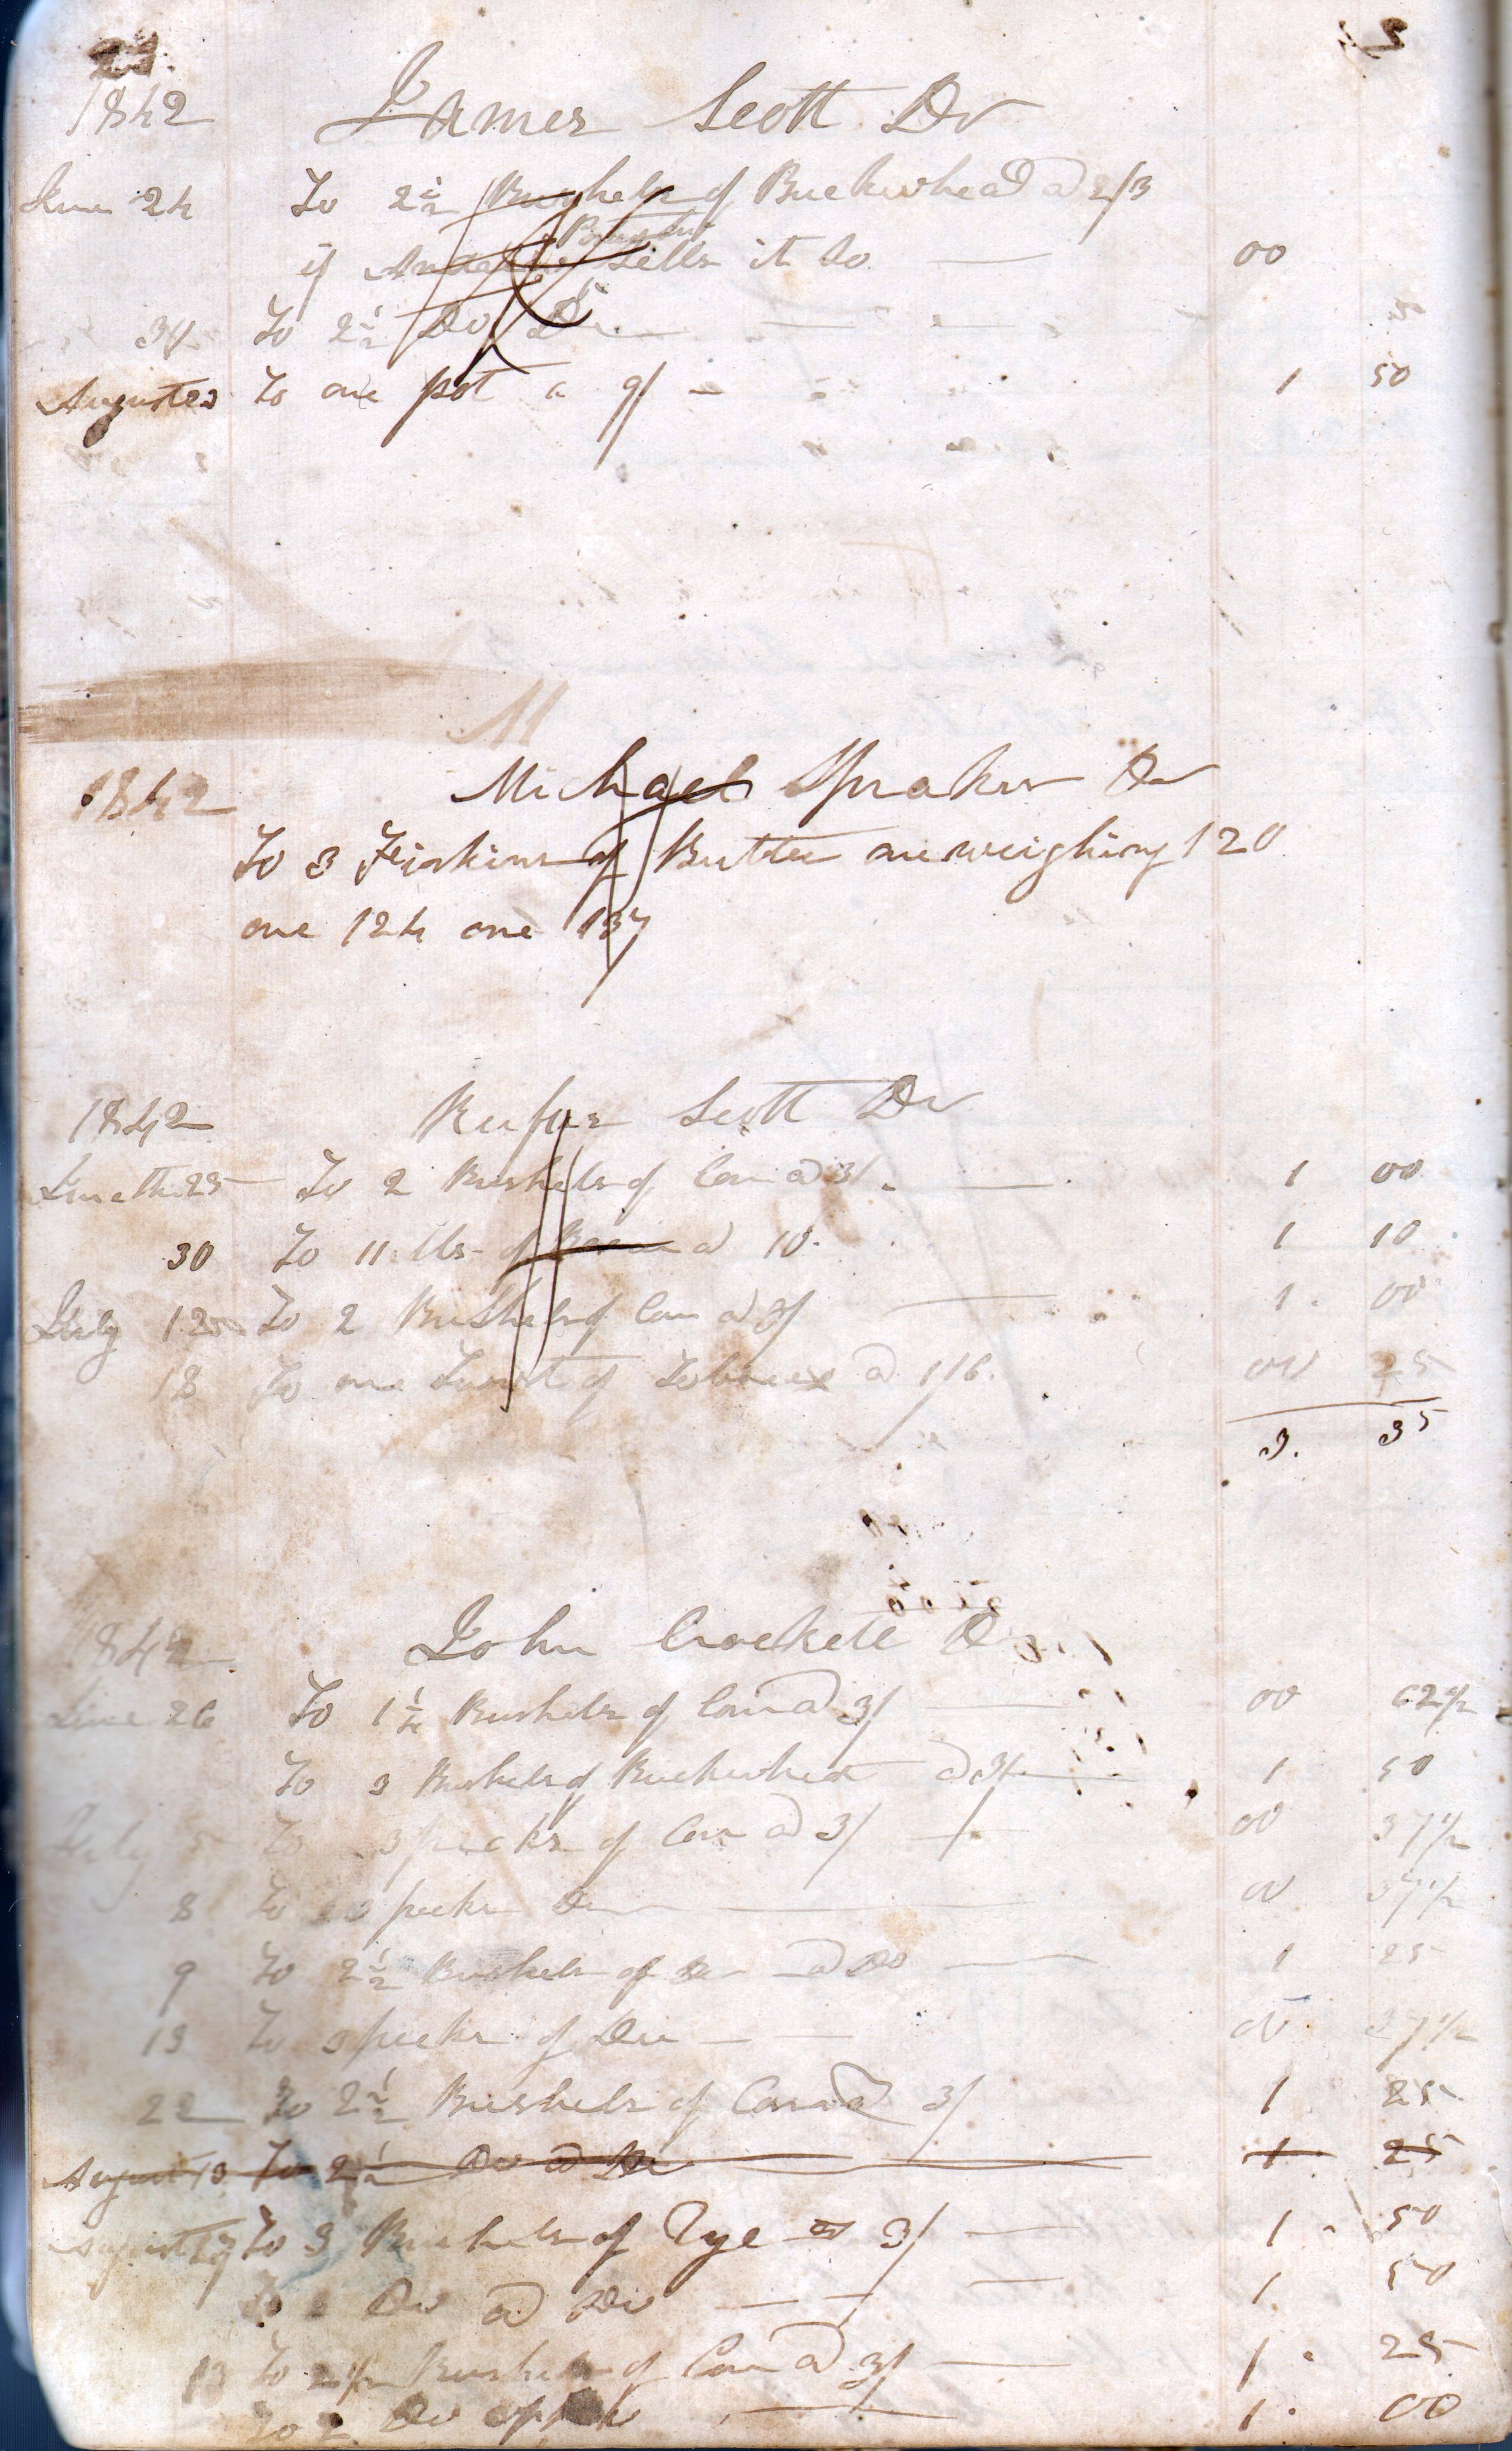 24.
1842 James Scott Dr
June 24 To 2 1/2 Bushels of Buckwheat @ 2/3
if sells it so 00
To 2 1/2 Do Do
August 23 To one pot a 9/ 1 50
1842 Michael Spraker Dr
To 3 Firkins of Butter one weighing 120
one 124 one 137
1842 Rufus Scott Dr
June the 25 To 2 Bushels of Corn @ 3/ 1 00
30 To 11 lbs of @ 10. 1 10
July 12 To 2 Bushels of Corn @ 3/ 1. 00
18 To one Twist of Tobacco @ 1/6. 00 25
3. 35
1842 John Crockett Dr
June 26 To 1 1/4 Bushels of Corn @ 3/ 00 62 1/2
To 3 Bushels of Buckwheat @ 3/ 1 50
July 5 To 3 pecks of Corn @ 3/ 00 37 1/2
8 To 3 pecks Do 00 37 1/2
9 To 2 1/2 Bushels of Do @ Do 1 25
13 To 3 pecks of Do 00 37 1/2
22 To 2 1/2 Bushels of Corn @ 3/ 1 25
August 13 To 2 1/2 Do @ Do 1 25
August To 3 Bushels of Rye @ 3/ 1. 50
Do @ Do 1. 50
13 To 2 1/2 Bushels of Corn @ 3/ 1. 25
To 2 Do 1. 00